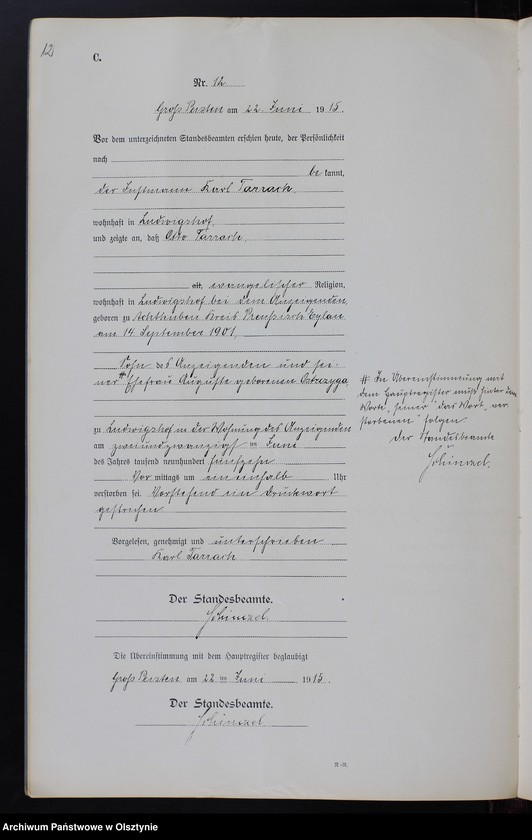 12
C.
Nr. 12
Groß Peisten am 22. Juni 1915.
Vor dem unterzeichneten Standesbeamten erschien heute, der Persönlichkeit
nach
be kannt,
der Instmann Karl Tarrach,
wohnhaft in Ludwigshof,
und zeigte an, daß Otto Tarrach,
alt, evangelischer Religion,
wohnhaft in Ludwigshof bei dem Anzeigenden,
geboren zu Kreis Preußisch Eylau
am 14. September 1901,
Sohn des Anzeigenden und sei-
ner # Ehefrau Auguste geborenen Ostrzyga
zu Ludwigshof in der Wohnung des Anzeigenden
am zweiundzwanzigsten Juni
des Jahres tausend neunhundert fünfzehn
Vor mittags um ein einhalb Uhr
verstorben sei. Vorstehend ein Druckwort
gestrichen
Vorgelesen, genehmigt und unterschrieben
Karl Tarrach
Der Standesbeamte.
Schinzel.
Die Übereinstimmung mit dem Hauptregister beglaubigt
Groß Peisten am 22 ten Juni 1915.
Der Standesbeamte.
Schinzel
# In Übereinstimmung mit
dem Hauptregister muß hinter dem
Worte „seiner" das Wort „ver
storbenen" folgen.
Der Standesbeamte
Schinzel.
Archiwum Państwowe w Olsztynie